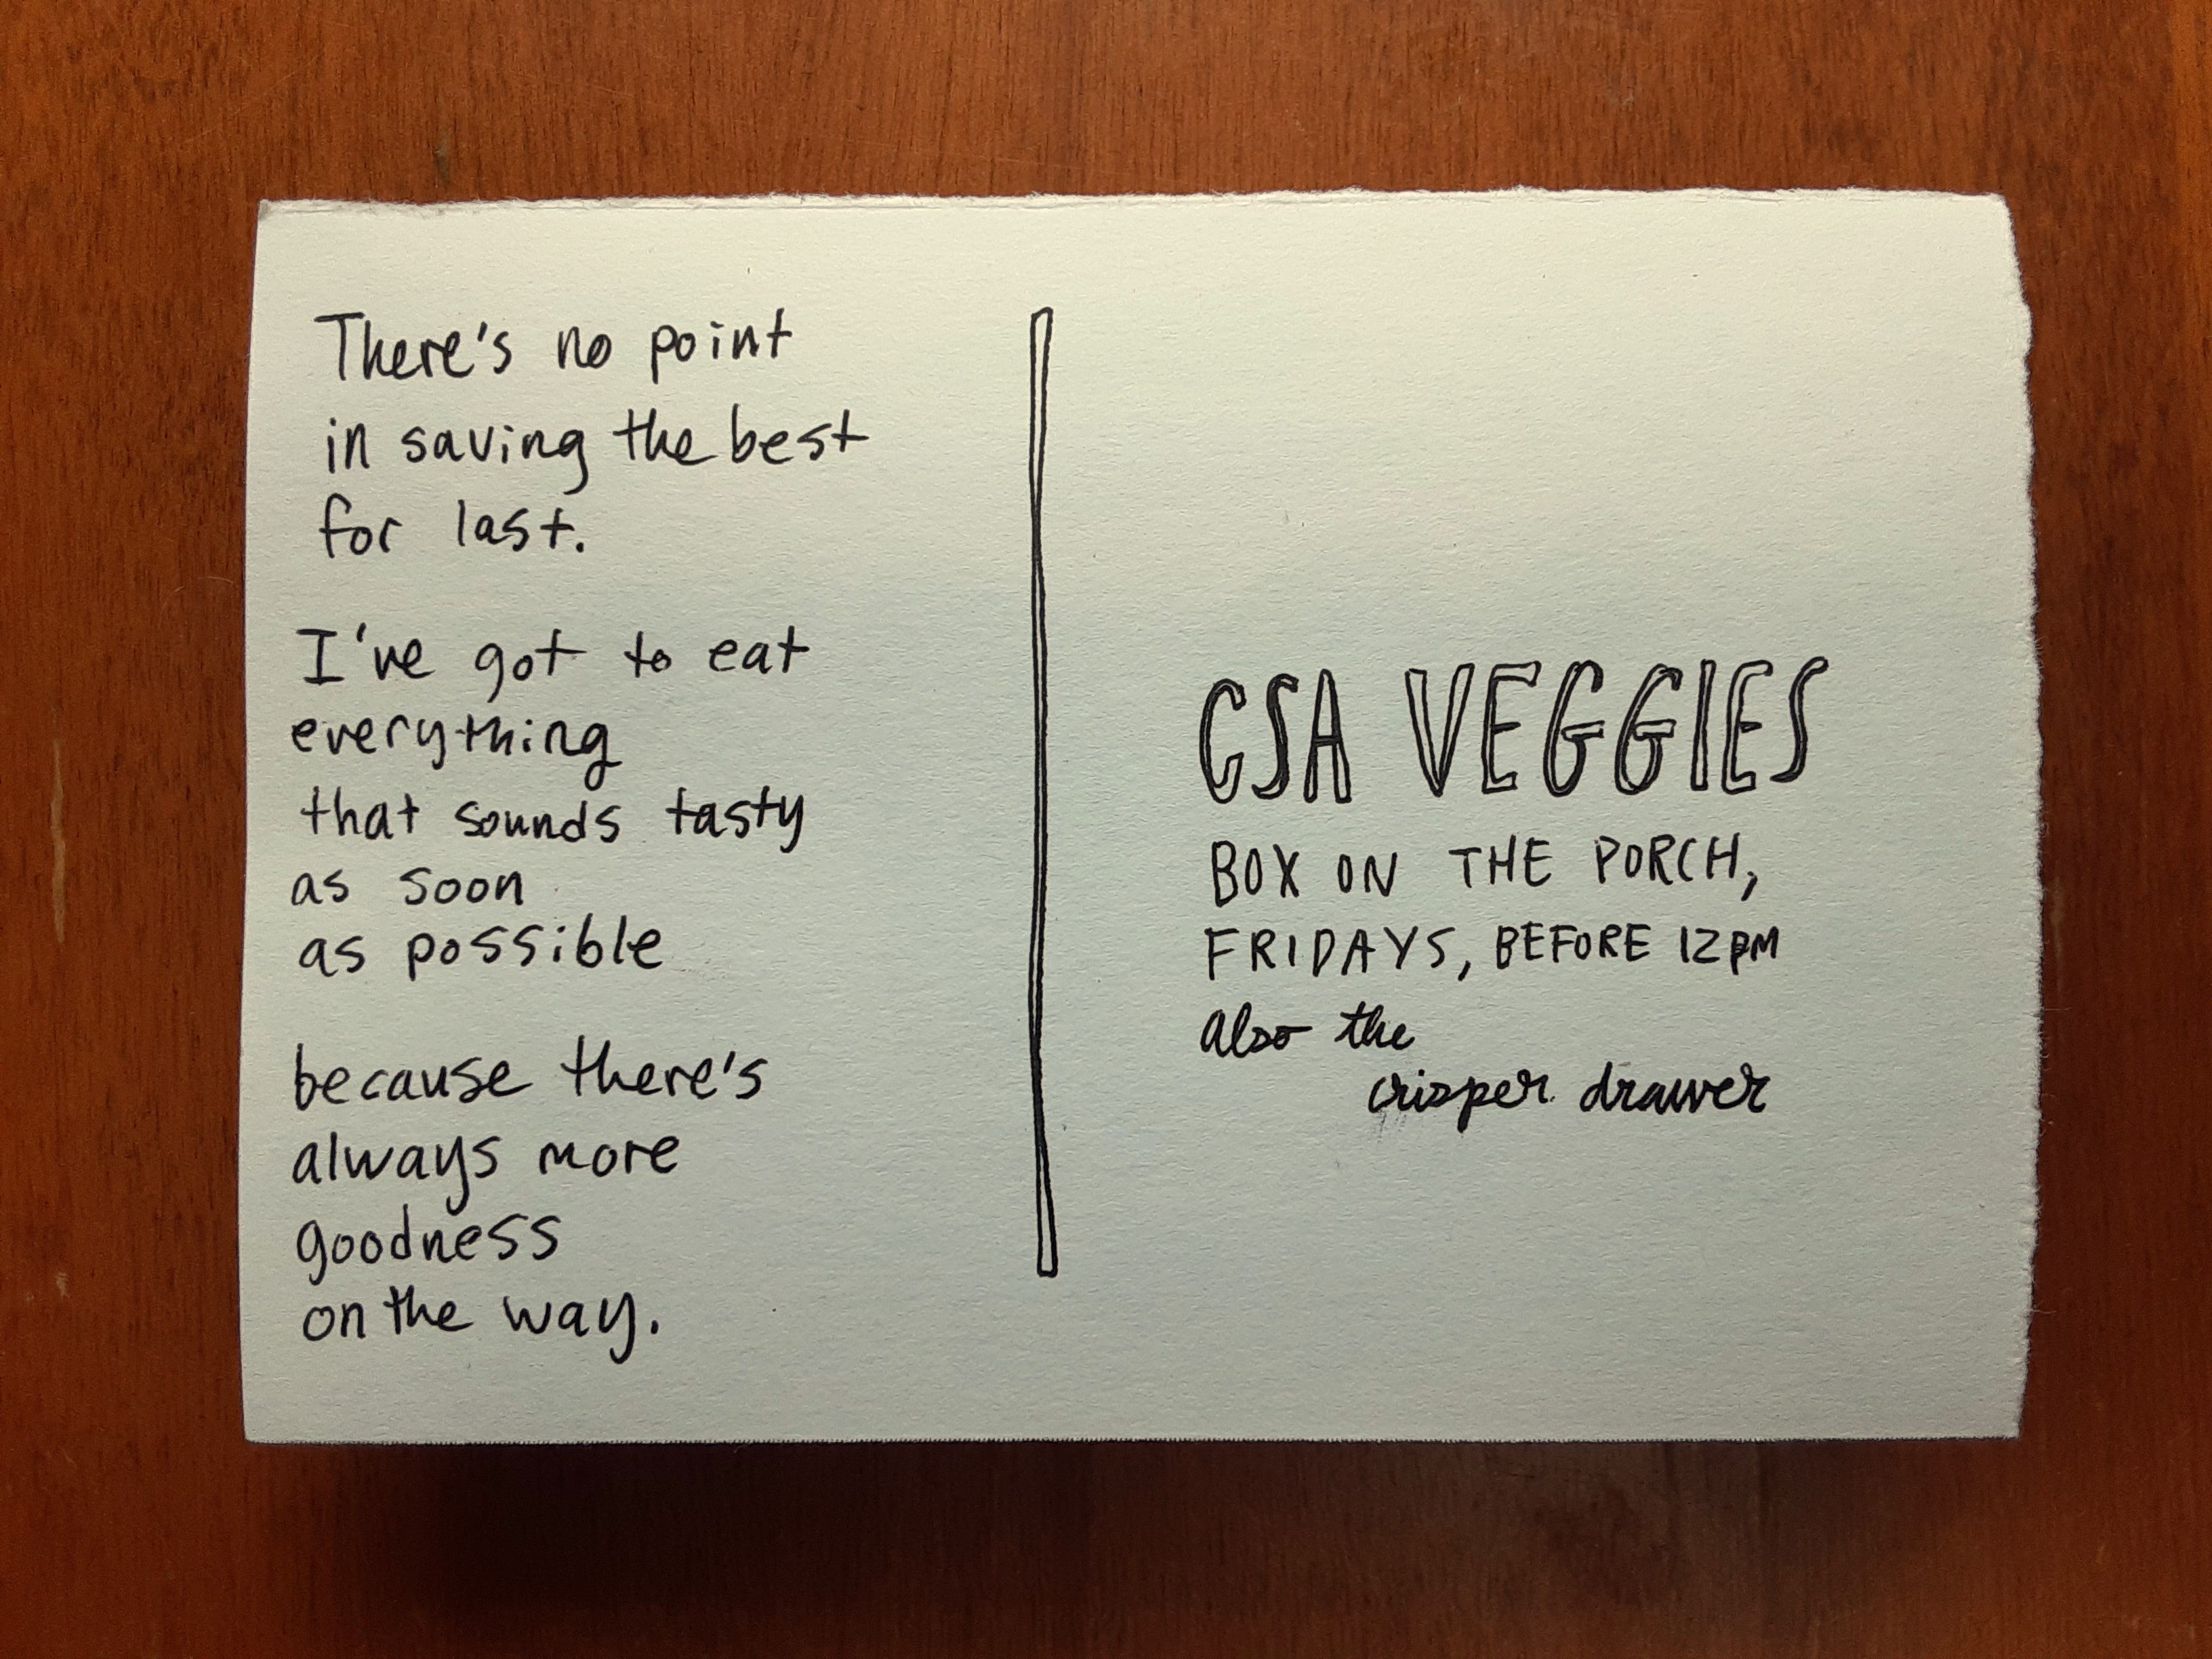 There's no point
in saving the best
for last.
I've got to eat
everything
that sounds tasty
as soon
as possible
because there's
always more
goodness
on the way.
CSA VEGGIES
BOX ON THE PORCH,
FRIDAYS, BEFORE 12PM
also the
crisper drawer